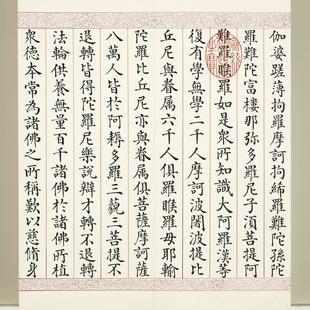 伽婆蹉薄拘羅摩訶拘絺羅難陀孫陀
羅難陀富樓那弥多羅尼子湏菩提阿
難羅睺羅如是衆所知識大阿羅漢等
復有學無學二千人摩訶波闍波提比
丘尼與眷属六千人俱羅睺羅母耶輸
陀羅比丘尼亦與眷属俱菩薩摩訶薩
八萬人皆於阿耨多羅三藐三菩提不
退轉皆得陀羅尼樂說辯才轉不退轉
法輪供養無量百千諸佛於諸佛所植
衆德本常為諸佛之所稱歎以慈脩身